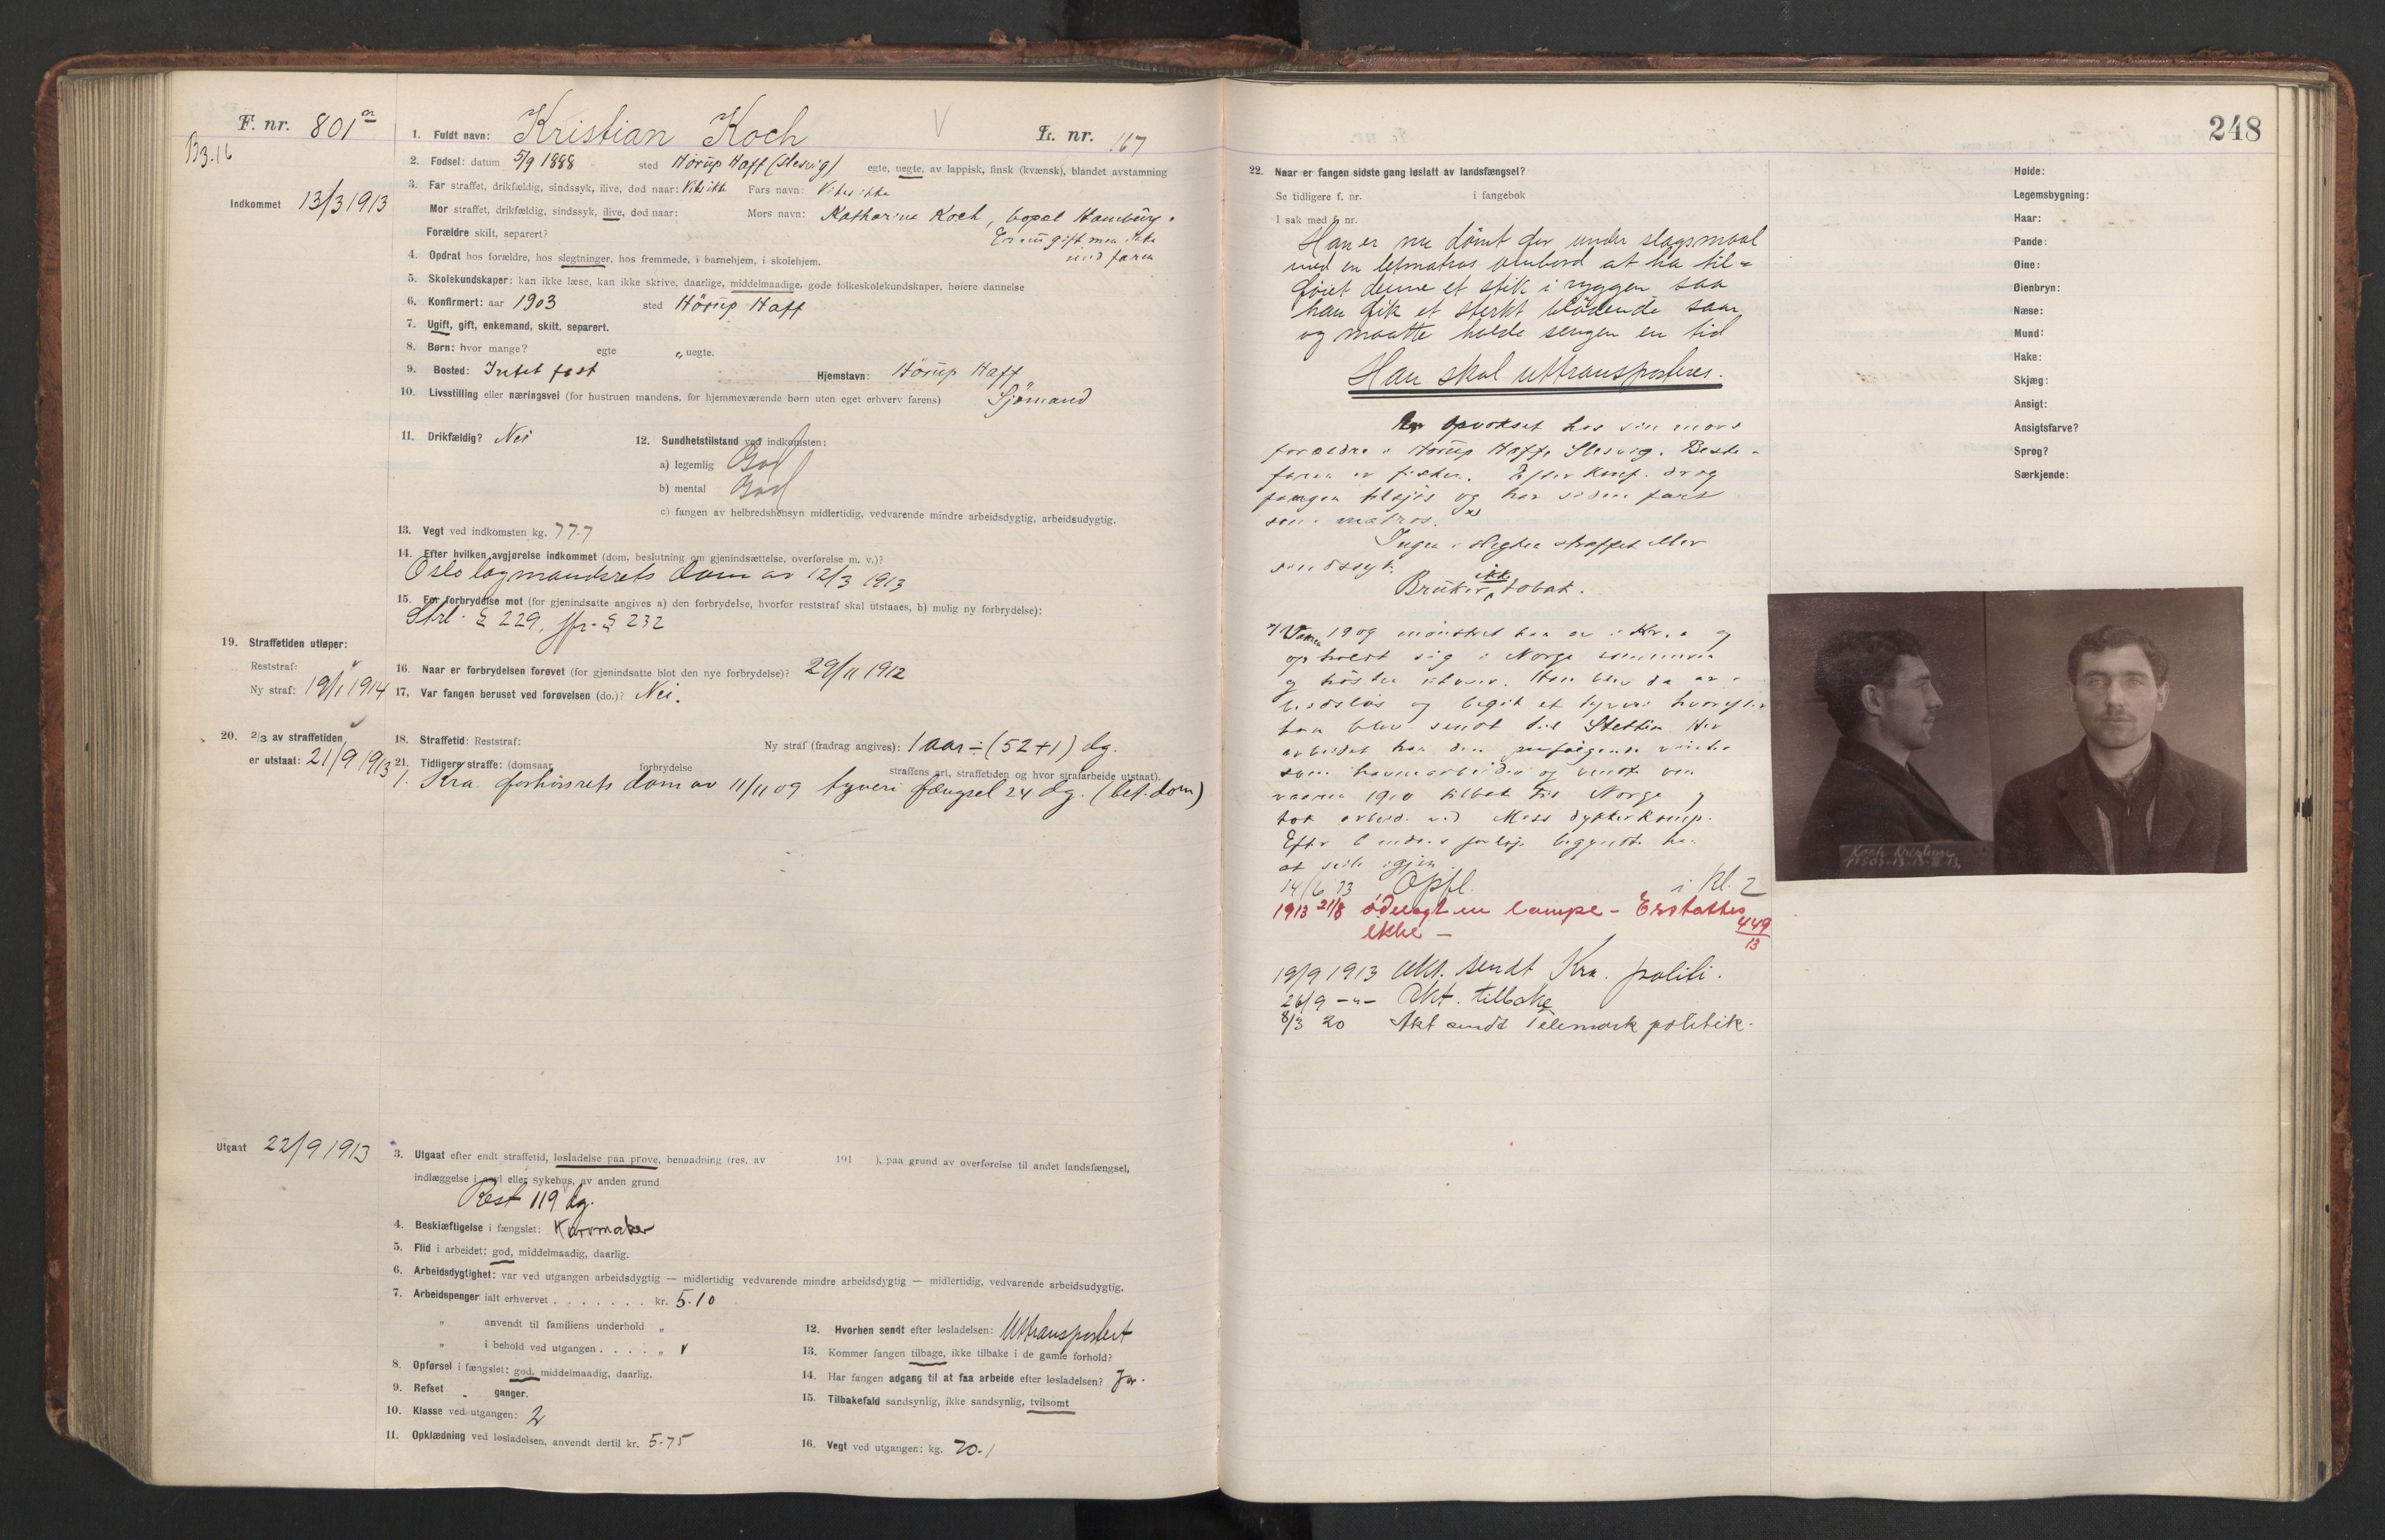 F. nr. 801
B3.16
Indkommet 13/3 1913
1. Fuldt navn: Kristian Koch V
Fr. nr. 167
2. Fødsel: datum 5/9 1888 sted Hörup Haff (Slesvig) egte, uegte, av lappisk, finsk (kvænsk), blandet avstamning
3. Far straffet, drikfældig, sindssyk, ilive, død naar: Vites ikke Fars navn: Vites ikke
Mor straffet, drikfældig, sindssyk, ilive, død naar: Mors navn: Katharina Koch, bopæl Hamburg.
Forældre skilt, separert? Er nu gift men ikke
med faren
4. Opdrat hos forældre, hos slegtninger, hos fremmede, i barnehjem, i skolehjem.
5. Skolekundskaper: kan ikke læse, kan ikke skrive, daarlige, middelmaadige, gode folkeskolekundskaper, høiere dannelse
6. Konfirmert: aar 1903 sted Hörup Haff
7. Ugift, gift, enkemand, skilt, separert.
8. Børn: hvor mange? egte „ uegte.
9. Bosted: Intet fast Hjemstavn: Hörup Haff
10. Livsstilling eller næringsvei (for hustruen mandens, for hjemmeværende børn uten eget erhverv farens) Sjömand
11. Drikfældig? Nei
12. Sundhetstilstand ved indkomsten:
a) legemlig God
b) mental God
c) fangen av helbredshensyn midlertidig, vedvarende mindre arbeidsdygtig, arbeidsudygtig.
13. Vegt ved indkomsten kg. 77.7
14. Efter hvilken avgjørelse indkommet (dom, beslutning om gjenindsættelse, overførelse m. v.)?
Oslo lagmandsrets dom av 12/3 1913
15. For forbrydelse mot (for gjenindsatte angives a) den forbrydelse, hvorfor reststraf skal utstaaes, b) mulig ny forbrydelse):
Strl. § 229, jfr. § 232
19. Straffetiden utløper:
Reststraf:
Ny straf: 19/1 1914
16. Naar er forbrydelsen forøvet (for gjenindsatte blot den nye forbrydelse)? 29/11 1912
17. Var fangen beruset ved forøvelsen (do.)? Nei.
20. 2/3 av straffetiden
er utstaat: 21/9 1913
18. Straffetid: Reststraf: Ny straf (fradrag angives): 1 aar ÷ (52+1) dg.
21. Tidligere straffe: (domsaar forbrydelse straffens art, straffetiden og hvor strafarbeide utstaat).
1. Kra. forhörsrets dom av 11/11 09 tyveri fængsel 24 dg. (bet. dom)
Utgaat 22/9 1913
3. Utgaat efter endt straffetid, løsladelse paa prøve, benaadning (res. av 191 ), paa grund av overførelse til andet landsfængsel,
indlæggelse i asyl eller sykehus, av anden grund
Rest 119 dg.
4. Beskiæftigelse i fængslet: Kurvmaker
5. Flid i arbeidet: god, middelmaadig, daarlig.
6. Arbeidsdygtighet: var ved utgangen arbeidsdygtig — midlertidig vedvarende mindre arbeidsdygtig — midlertidig, vedvarende arbeidsudygtig.
7. Arbeidspenger ialt erhvervet . . . . . . . kr. 5.10
„ anvendt til familiens underhold „
„ i behold ved utgangen . . . . „
8. Opførsel i fængslet: god, middelmaadig, daarlig.
9. Refset „ ganger.
10. Klasse ved utgangen: 2
11. Opklædning ved løsladelsen, anvendt dertil kr. 5.75
12. Hvorhen sendt efter løsladelsen: Uttransportert
13. Kommer fangen tilbage, ikke tilbake i de gamle forhold?
14. Har fangen adgang til at faa arbeide efter løsladelsen? Ja.
15. Tilbakefald sandsynlig, ikke sandsynlig, tvilsomt
16. Vegt ved utgangen: kg. 70.1
248
22. Naar er fangen sidste gang løslatt av landsfængsel?
Se tidligere f. nr. i fangebok
I sak med f. nr.
Han er nu dömt for under slagsmaal
med en letmatros ombord at ha til-
föiet denne et stik i ryggen saa
han fik et sterkt blödende saar
og maatte holde sengen en tid
Han skal uttransporteres.
Er opvokset hos sin mors
forældre i Hörup Haff, Slesvig. Beste-
faren er fisker. Efter konf. drog
fangen tilsjös og har siden fart
som matros. x)
Ingen i slegten straffet eller
sindssyk.
Bruker ikke tobak.
x) Vaaren 1909 mönstret han av i Kr.a og
opholdt sig i Norge sommeren
og hösten utover. Han blev da ar-
beidslös og begik et tyveri hvorefter
han blev sendt til Stettin. Her
arbeidet han den paafölgende vinter
som havnearbeider og vendte om
vaaren 1910 tilbake til Norge og
tok arbeide ved Moss dykkerkomp.
Efter 6 mdr.s forlöp begyndte han
at seile igjen.
14/6 13 Opfl. i kl. 2
1913 21/8 ödelagt en lampe - Erstattes
ikke - 449/13
19/9 1913 Akt. sendt Kra. politi.
26/9 -"- Akt. tilbake
8/3 20 Akt sendt Telemark politik.
Høide:
Legemsbygning:
Haar:
Pande:
Øine:
Øienbryn:
Næse:
Mund:
Hake:
Skjæg:
Ansigt:
Ansigtsfarve?
Sprog?
Særkjende:
Koch Kristian